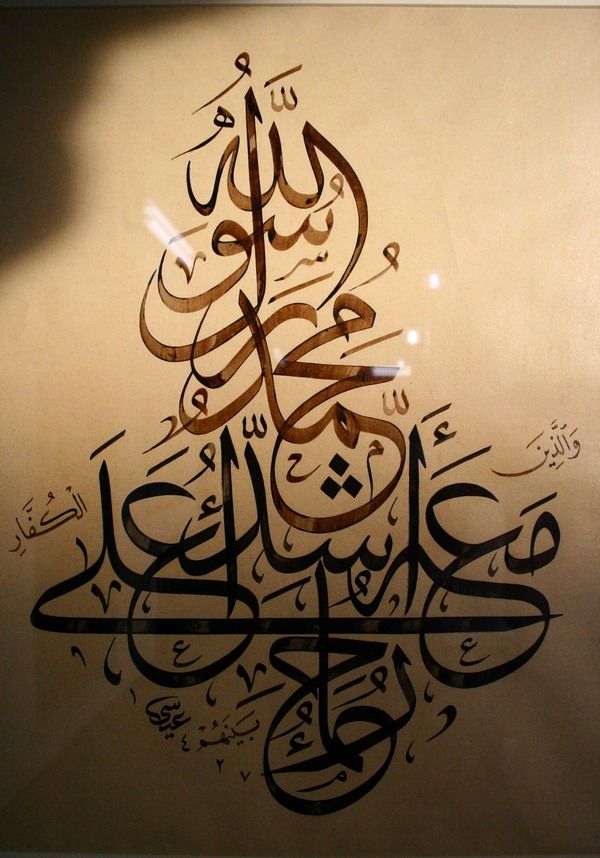 مُحَمَّدٌ رَسُولُ اللّٰهِ
وَالَّذِينَ
مَعَهُ أَشِدَّاءُ عَلَى
الْكُفَّارِ
رُحَمَاءُ
بَيْنَهُمْ
١٤٢٧